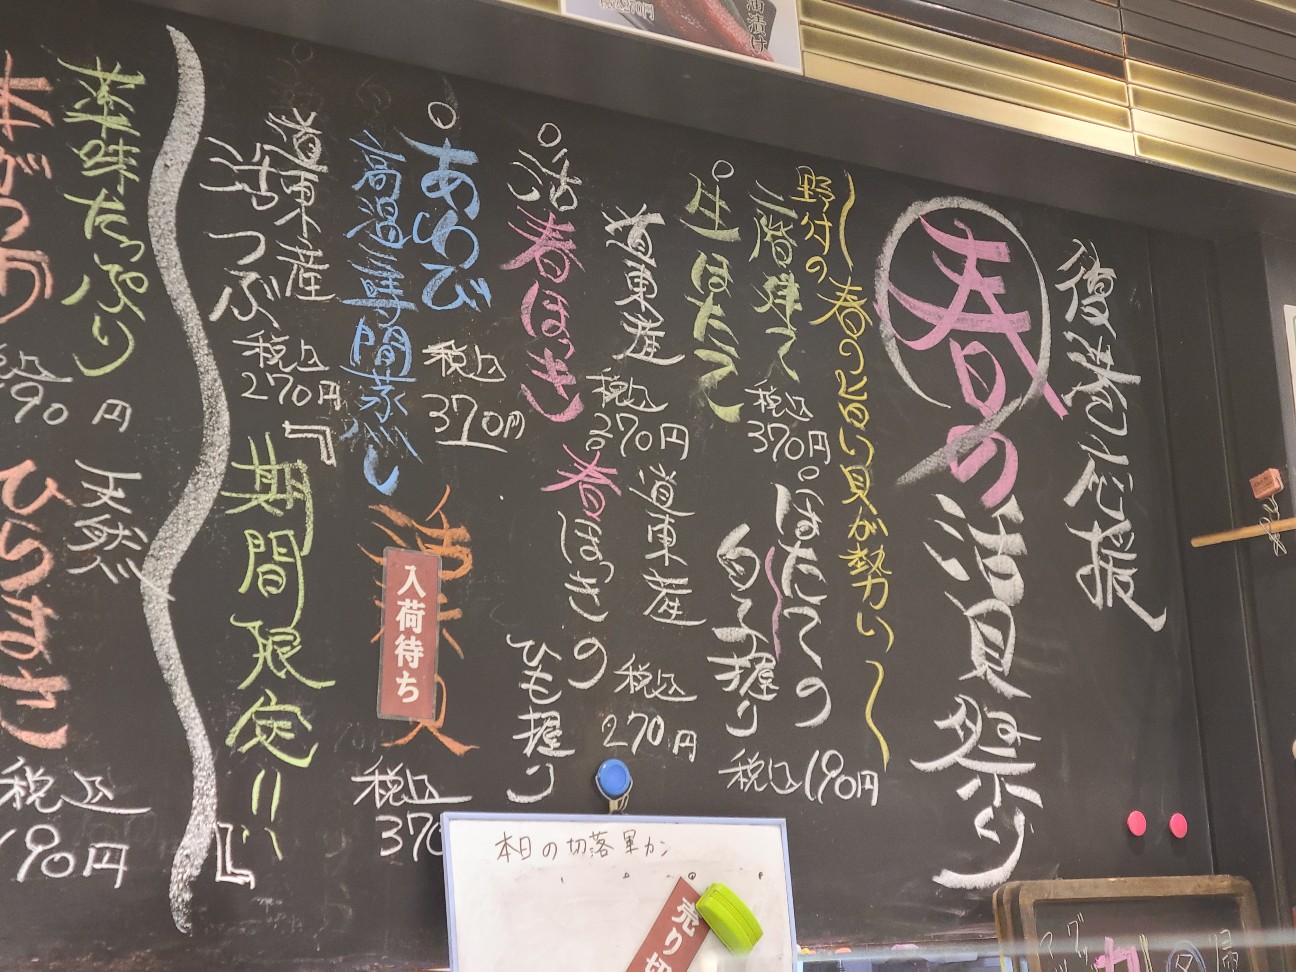 復港応援
春の活貝祭り
野付の春のヒロイ貝が勢い
二階建て
生ほたて
税込
370円
ほたての
白子握り
税込190円
道東産
活春ほっき
税込
370円
道東産
春ほっきの
ひも握り
税込
270円
あわび
高温瞬間蒸し
税込
370円
入荷待ち
税込
370
道東産
活つぶ
税込
270円
『期間限定!!』
薬味たっぷり
本がつお
税込
190円
天然
ひらまさ
税込
190円
本日の切落軍カン
売り切